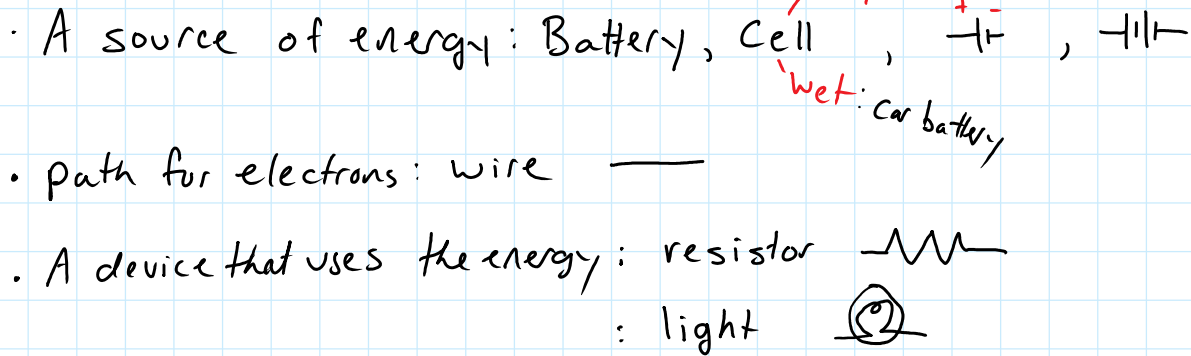 · A source of energy: Battery, Cell , + - ,
Wet: Car battery
· path for electrons: wire
· A device that uses the energy: resistor
: light